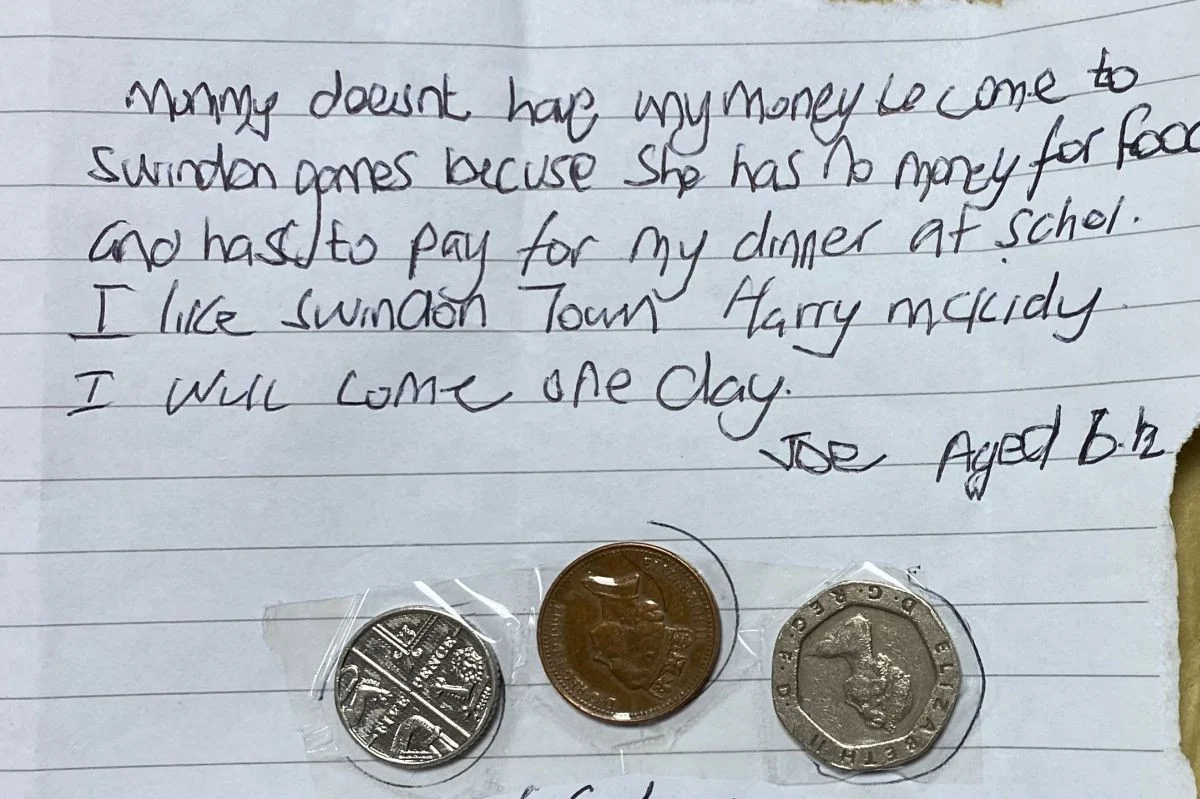 Mummy doesnt have any money to come to
Swindon games becuse she has no money for food
and has to pay for my dinner at schol.
I like swindon Town Harry mckidy
I will come one day.
Joe Aged 6.½
FIVE PENCE
ELIZABETH II
D·G·REG·F·D